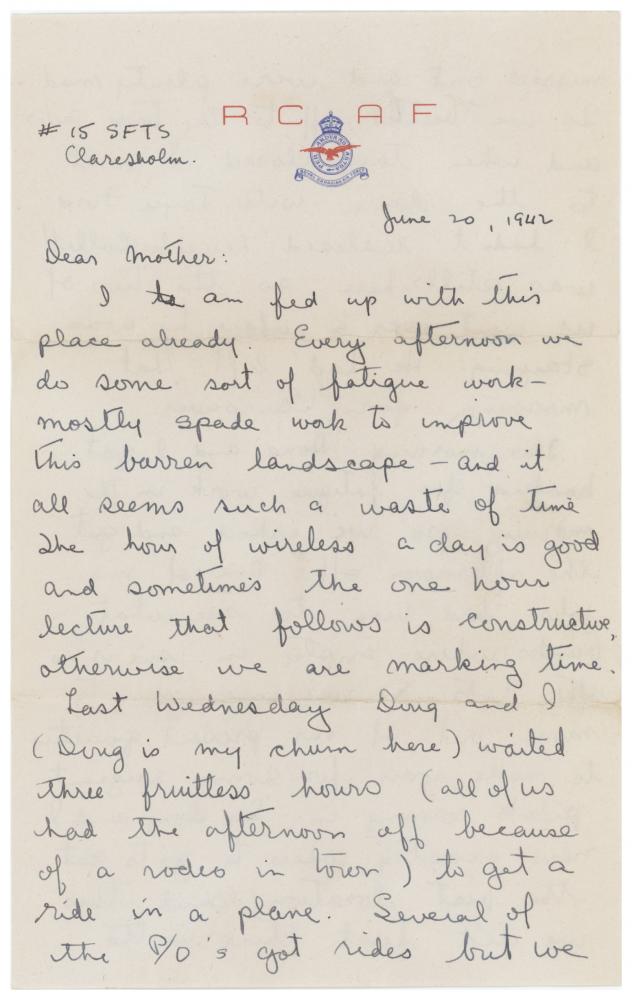 RCAF
# 15 SFTS
Claresholm.
PER ARDUA AD ASTRA
ROYAL CANADIAN AIR FORCE
June 20, 1942
Dear Mother:
I to am fed up with this
place already. Every afternoon we
do some sort of fatigue work –
mostly spade work to improve
this barren landscape – and it
all seems such a waste of time
The hour of wireless a day is good
and sometimes the one hour
lecture that follows is constructive,
otherwise we are marking time.
Last Wednesday Doug and I
(Doug is my chum here) waited
three fruitless hours (all of us
had the afternoon off because
of a rodeo in town) to get a
ride in a plane. Several of
the P/O's got rides but we